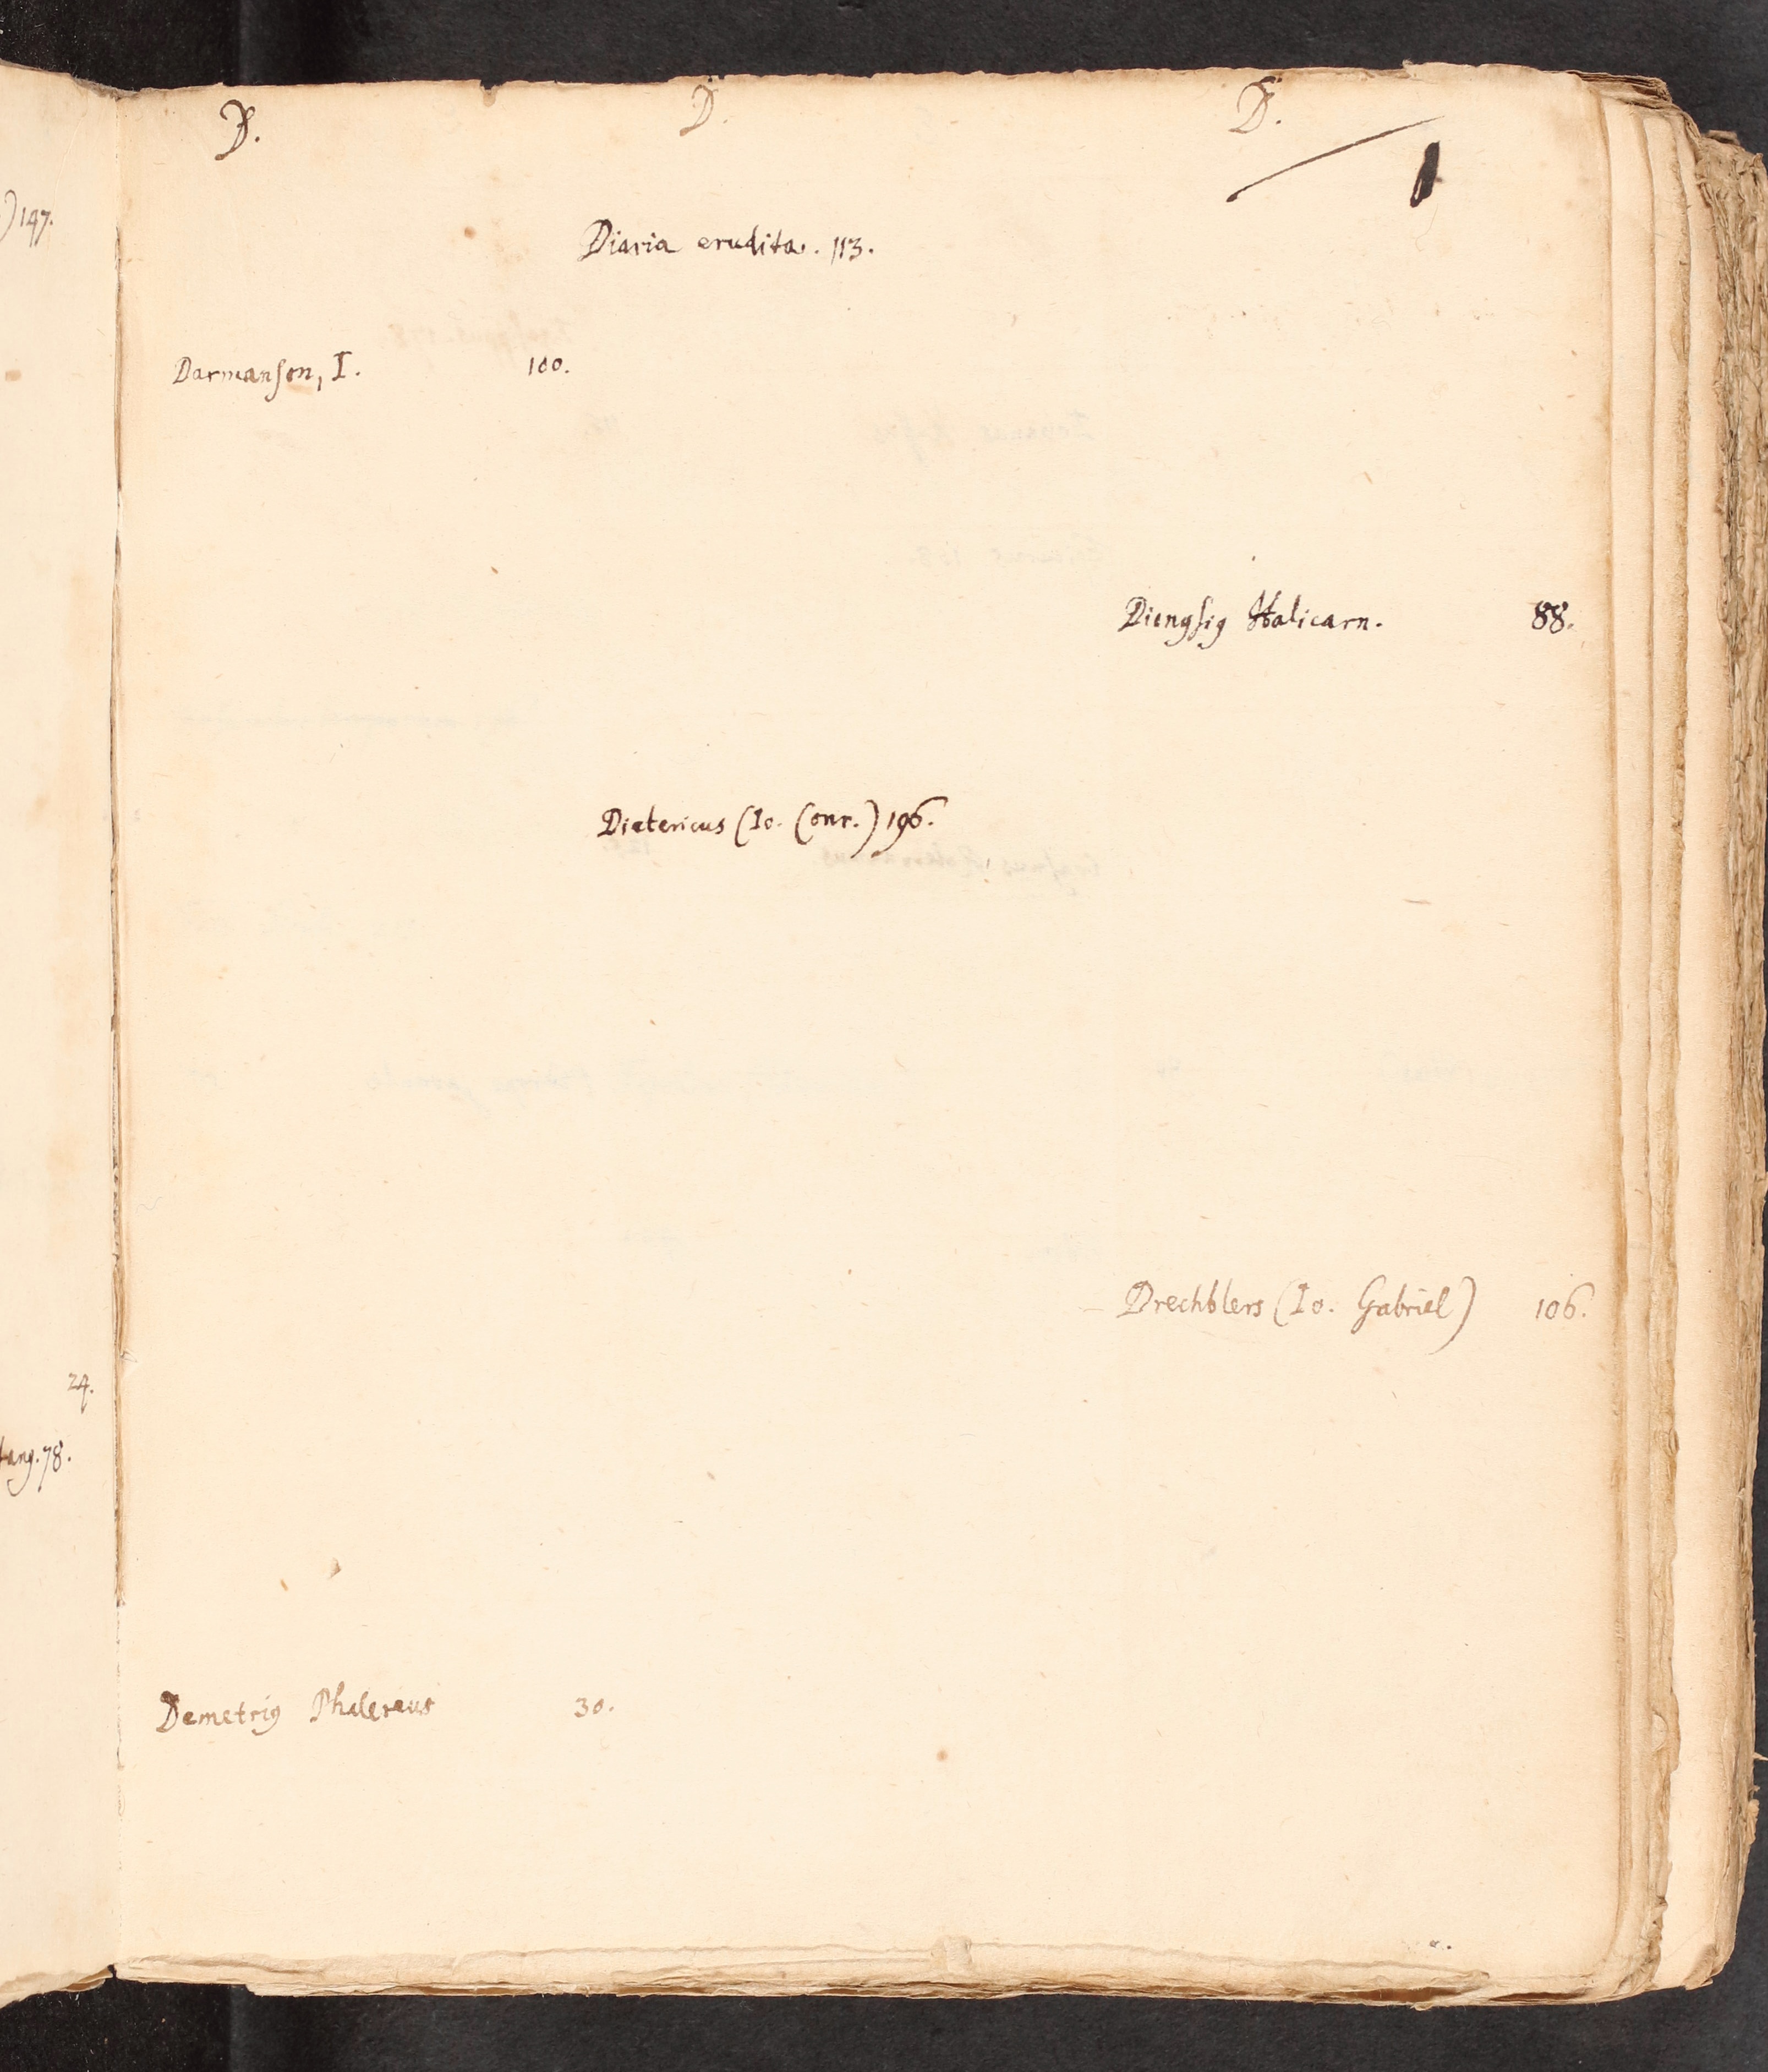 D.
D.
D.
)147.
Diaria erudita. 113.
Darmanson, I. 100.
Dionysius Halicarn. 88.
Dietericus (Io. Conr.) 196.
Drechßlers (Io. Gabriel) 106.
24.
78.
Demetrius Phalereus 30.